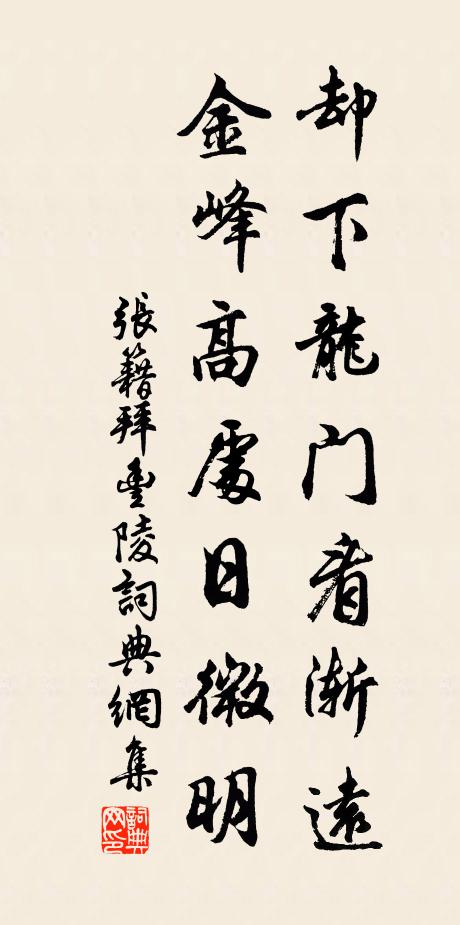 却下龍門看漸遠
金峰高處日微明
張籍拜豐陵詞典網集
詞典網印